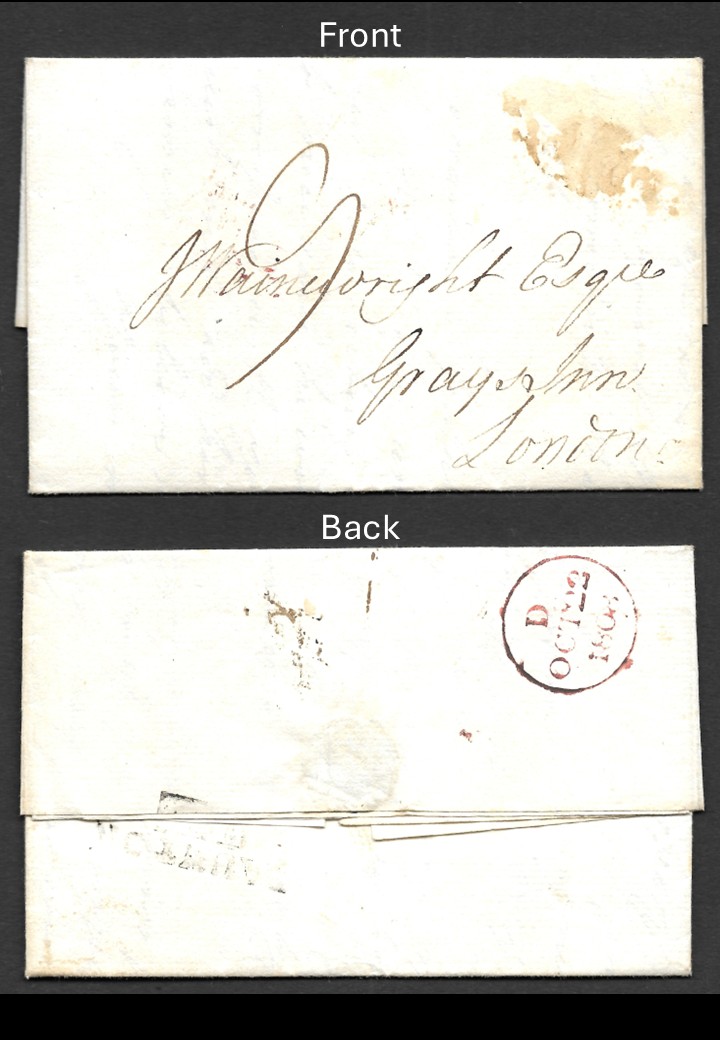 Front
9
Wainewright Esqre
Grays Inn
London
Back
D
OCT 22